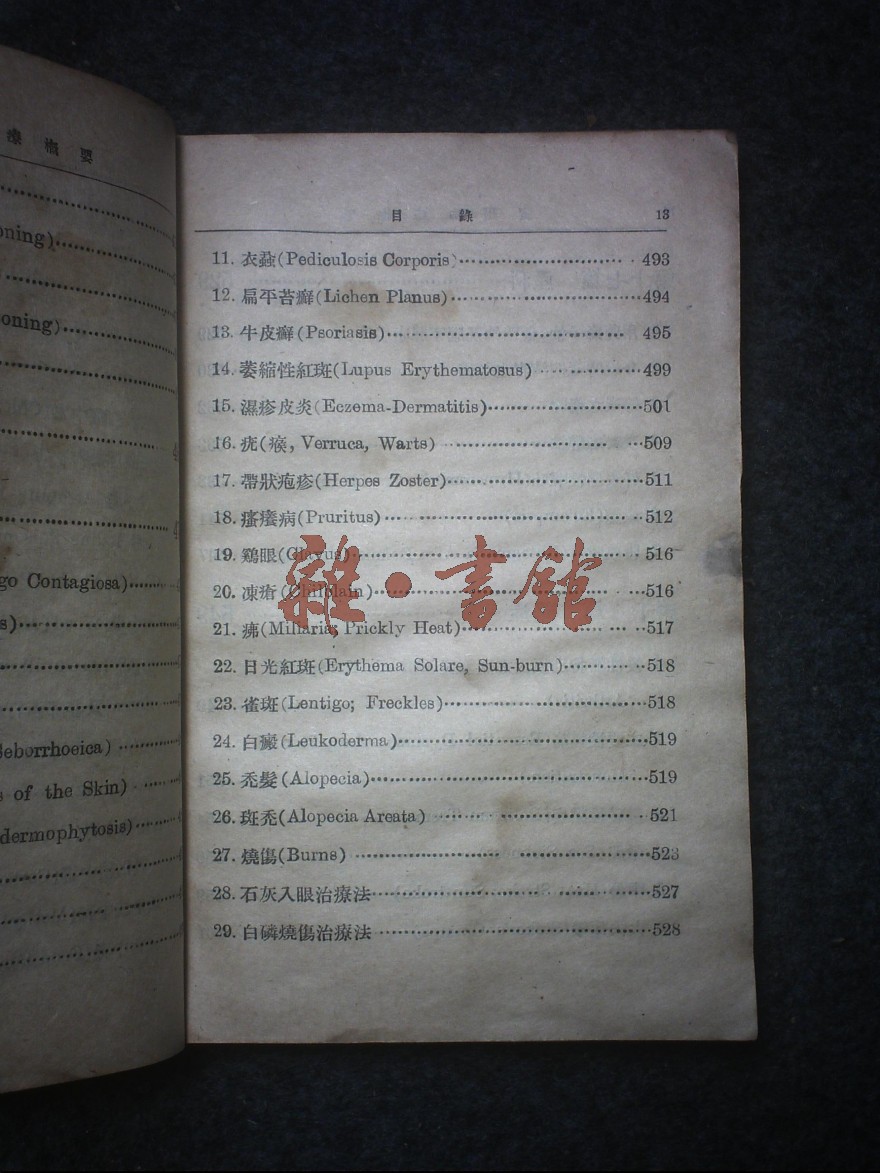 療概要
oning)
oning)
go Contagiosa)
s)
Seborrhoeica)
s of the Skin)
dermophytosis)
目 錄 13
11. 衣蝨(Pediculosis Corporis) 493
12. 扁平苔癬(Lichen Planus) 494
13. 牛皮癬(Psoriasis) 495
14. 萎縮性紅斑(Lupus Erythematosus) 499
15. 濕疹皮炎(Eczema-Dermatitis) 501
16. 疣(瘊, Verruca, Warts) 509
17. 帶狀疱疹(Herpes Zoster) 511
18. 瘙癢病(Pruritus) 512
19. 鷄眼(Clavus) 516
20. 凍瘡(Chilblain) 516
21. 疿(Miliaria; Prickly Heat) 517
22. 日光紅斑(Erythema Solare, Sun-burn) 518
23. 雀斑(Lentigo; Freckles) 518
24. 白癜(Leukoderma) 519
25. 禿髮(Alopecia) 519
26. 斑禿(Alopecia Areata) 521
27. 燒傷(Burns) 523
28. 石灰入眼治療法 527
29. 白磷燒傷治療法 528
雜·書館